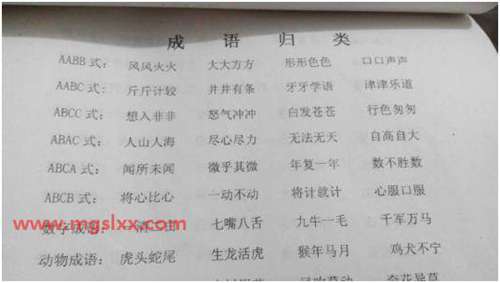 成 语 归 类
AABB 式： 风风火火 大大方方 形形色色 口口声声
AABC 式： 斤斤计较 井井有条 牙牙学语 津津乐道
ABCC 式： 想入非非 怒气冲冲 白发苍苍 行色匆匆
ABAC 式： 人山人海 尽心尽力 无法无天 自高自大
ABCA 式： 闻所未闻 微乎其微 年复一年 数不胜数
ABCB 式： 将心比心 一动不动 将计就计 心服口服
www.mgslxx.com
数字成语： 七嘴八舌 九牛一毛 千军万马
动物成语： 虎头蛇尾 生龙活虎 猴年马月 鸡犬不宁
奇花异草